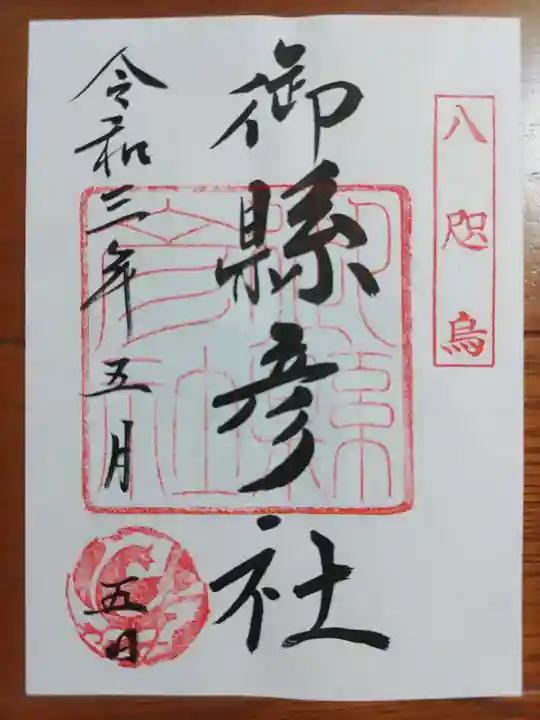 八咫烏
御縣彦社
令和三年五月
五日